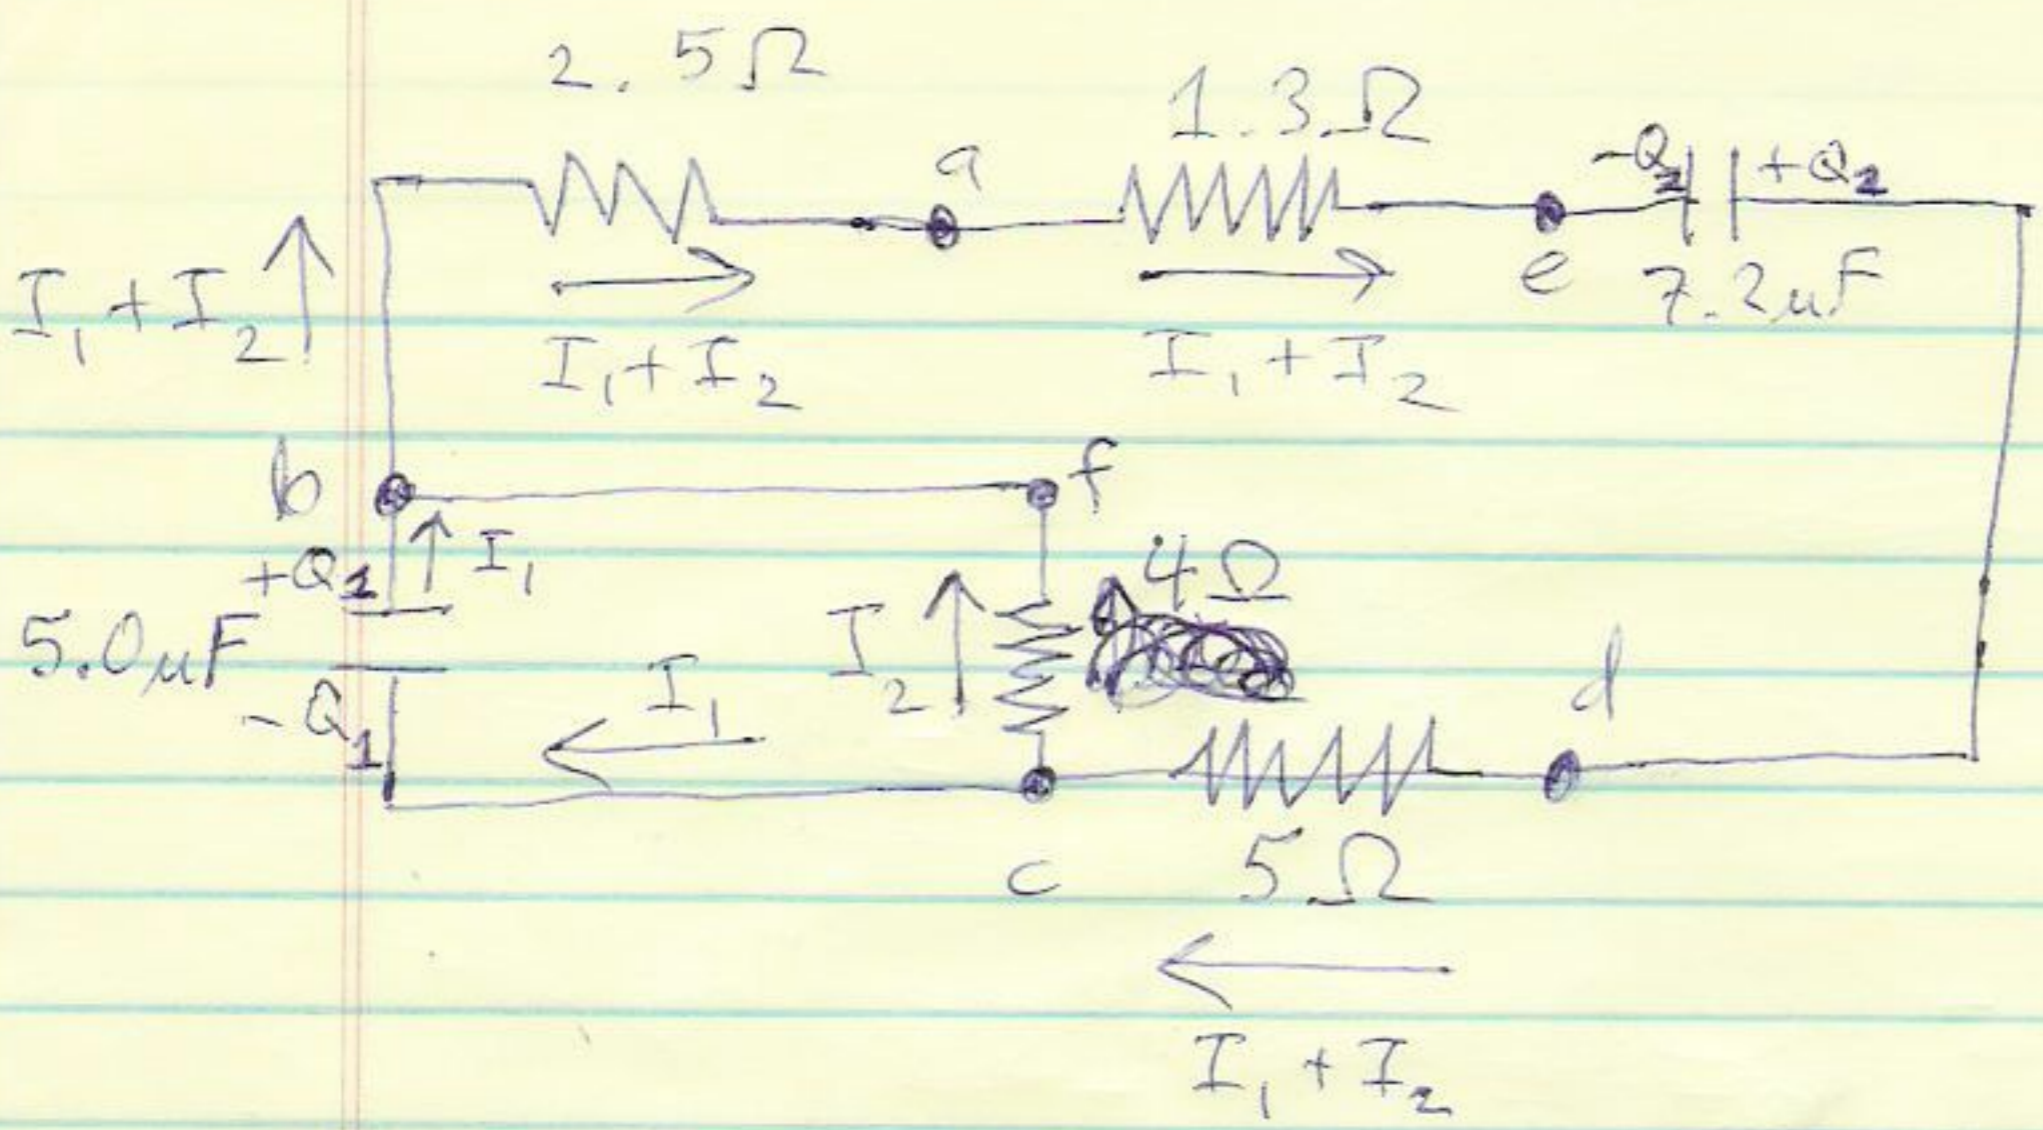 2.5Ω
1.3Ω
a
-Q2
+Q2
e
7.2uF
I1+I2
I1+I2
I1+I2
b
f
+Q1
I1
4Ω
5.0uF
I2
-Q1
I1
d
c
5Ω
I1+I2